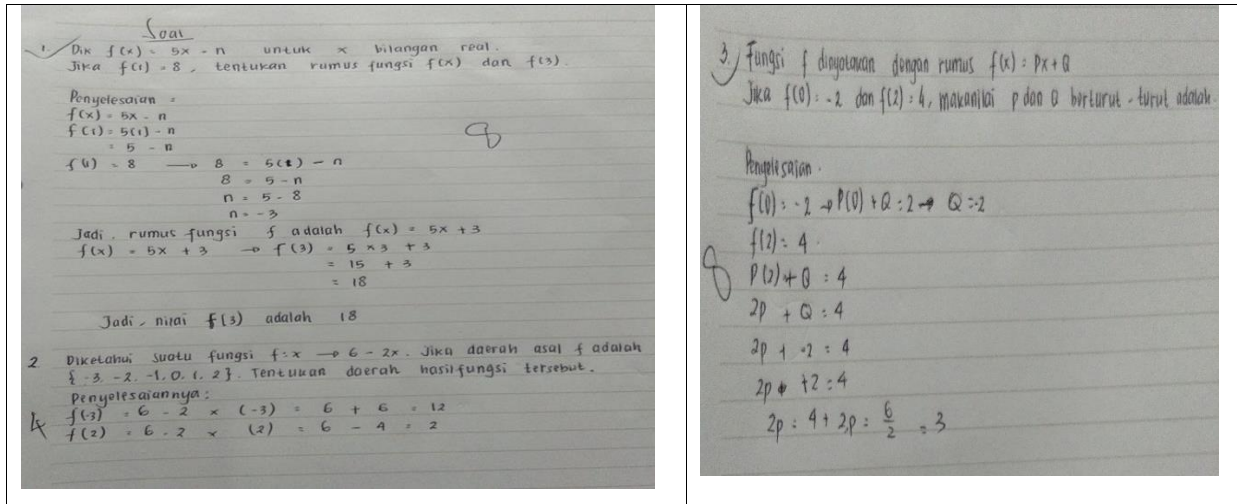 Soal
1. Dik f(x) = 5x - n untuk x bilangan real.
Jika f(1) = 8, tentukan rumus fungsi f(x) dan f(3).
Penyelesaian =
f(x) = 5x - n
f(1) = 5(1) - n
= 5 - n
f(1) = 8 → 8 = 5(1) - n
8 = 5 - n
n = 5 - 8
n = -3
Jadi, rumus fungsi f adalah f(x) = 5x + 3
f(x) = 5x + 3 → f(3) = 5 x 3 + 3
= 15 + 3
= 18
Jadi, nilai f(3) adalah 18
8
2 Diketahui suatu fungsi f : x → 6 - 2x. Jika daerah asal f adalah
{-3, -2, -1, 0, 1, 2}. Tentukan daerah hasil fungsi tersebut.
Penyelesaiannya :
f(-3) = 6 - 2 x (-3) = 6 + 6 = 12
f(2) = 6 - 2 x (2) = 6 - 4 = 2
4
3. Fungsi f dinyatakan dengan rumus f(x) = Px + Q
Jika f(0) = -2 dan f(2) = 4, makanilai p dan Q berturut-turut adalah.
Penyelesaian.
f(0) = -2 → P(0) + Q = 2 → Q = -2
f(2) = 4.
P(2) + Q = 4
2p + Q = 4
2p + -2 = 4
2p +2 = 4
2p = 4 + 2, p = 6/2 = 3
8